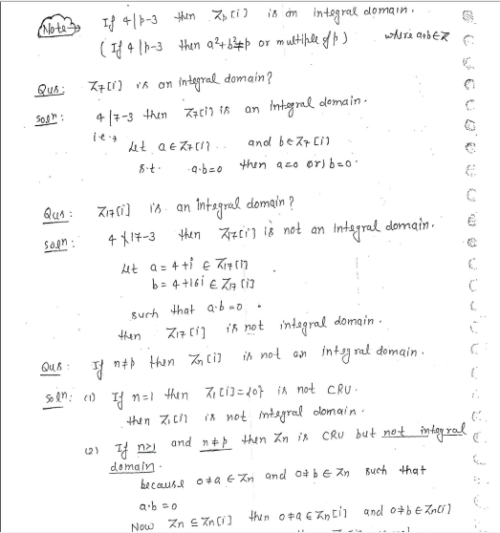 Note → If 4 | p-3 then Zp[i] is an integral domain.
( If 4 | p-3 then a²+b²≠p or multiple of p ) where a+b∈Z
Que: Z7[i] is an integral domain?
Soln: 4 | 7-3 then Z7[i] is an integral domain.
i.e.→
Let a ∈ Z7[i] and b ∈ Z7[i]
s.t. a·b=0 then a=0 or b=0.
Que: Z17[i] is an integral domain?
Soln: 4 ∤ 17-3 then Z17[i] is not an integral domain.
Let a = 4+i ∈ Z17[i]
b = 4+16i ∈ Z17[i]
such that a·b=0.
then Z17[i] is not integral domain.
Que: If n≠p then Zn[i] is not an integral domain.
Soln: (1) If n=1 then Z1[i]={0} is not CRU.
then Z1[i] is not integral domain.
(2) If n>1 and n≠p then Zn is CRU but not integral
domain.
because 0≠a ∈ Zn and 0≠b ∈ Zn such that
a·b=0
Now Zn ⊆ Zn[i] then 0≠a ∈ Zn[i] and 0≠b ∈ Zn[i]